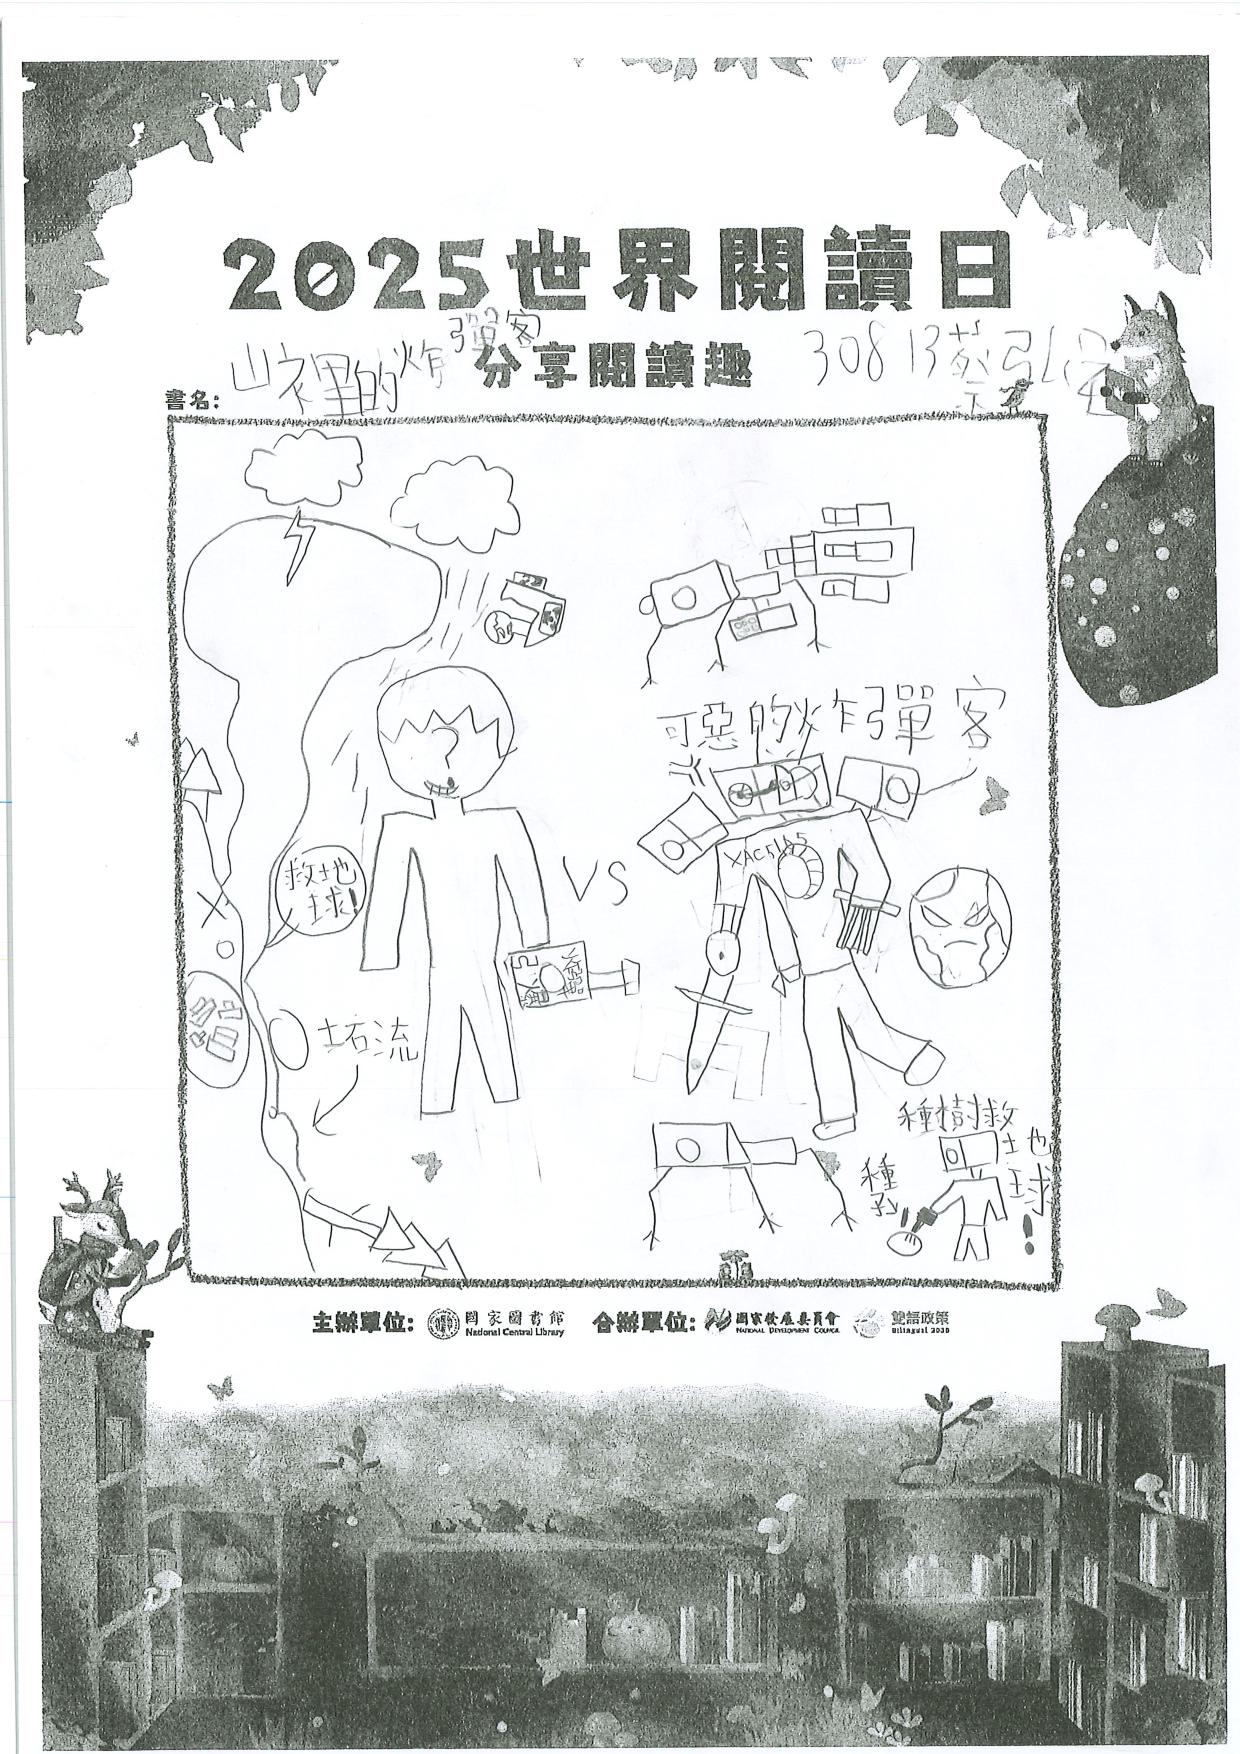 2025世界閱讀日
分享閱讀趣
書名:
山裡的炸彈客
308 13 蔡弘
可惡的炸彈客
救地球!
VS
XAC5165
土石流
種樹救地球!
種子
主辦單位: 國家圖書館 National Central Library
合辦單位: 國家發展委員會 NATIONAL DEVELOPMENT COUNCIL 雙語政策 Bilingual 2030